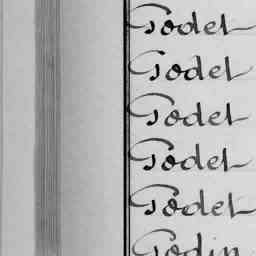 Godet
Godet
Godet
Godet
Godet
Godin